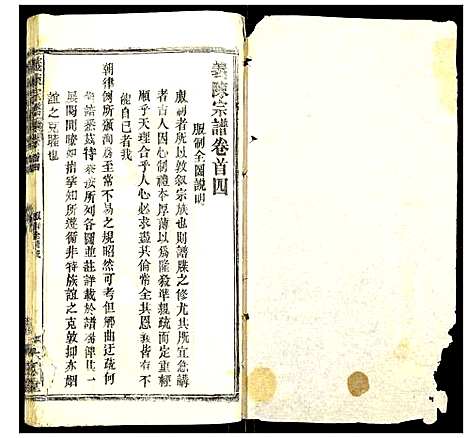 義陳宗譜卷首四
服制全圖說明
服制者所以敦敘宗族也則譜牒之修尤其所宜急講
者古人因心制禮本厚薄以為隆殺準親疏而定等差
順乎天理合乎人心必求盡其倫常全其恩義皆有不
能自已者我
朝律例所頒洵為至當不易之規昭然可考但鄉曲迂疏何
能譜悉茲特按所列各圖並註詳載於譜俾其一
展閱間瞭如指所遵循非特族誼之克敦抑亦姻
誼之克睦也